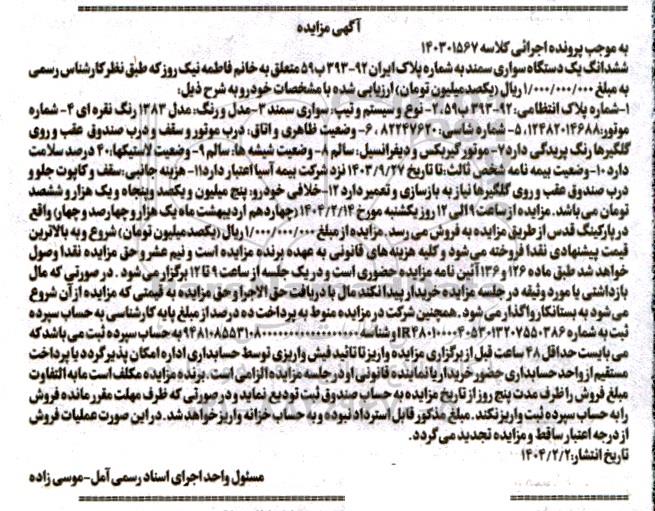 آگهی مزایده
به موجب پرونده اجرائی کلاسه ۱۴۰۳۰۱۵۶۷
ششدانگ یک دستگاه سواری سمند به شماره پلاک ایران ۹۲-۳۹۳ب۵۹ متعلق به خانم فاطمه نیک روز که طبق نظر کارشناس رسمی
به مبلغ ۱/۰۰۰/۰۰۰/۰۰۰ ریال (یکصد میلیون تومان) ارزیابی شده با مشخصات خودرو به شرح ذیل:
۱-شماره پلاک انتظامی: ۹۲-۳۹۳ب۵۹ ۲- نوع و سیستم و تیپ: سواری سمند ۳-مدل و رنگ: مدل ۱۳۸۳ رنگ نقره ای ۴- شماره
موتور: ۱۲۴۸۲۰۱۴۶۸۸ ۵- شماره شاسی: ۸۲۲۴۷۶۲۰ ۶- وضعیت ظاهری و اتاق: درب موتور و سقف و درب صندوق عقب و روی
گلگیرها رنگ پریدگی دارد ۷- موتور گیربکس و دیفرانسیل: سالم ۸- وضعیت شیشه ها: سالم ۹- وضعیت لاستیکها: ۴۰ درصد سلامت
دارد ۱۰-وضعیت بیمه نامه شخص ثالث: تا تاریخ ۱۴۰۳/۹/۲۷ نزد شرکت بیمه آسیا اعتبار دارد ۱۱- هزینه جانبی: سقف و کاپوت جلو و
درب صندوق عقب و روی گلگیرها نیاز به بازسازی و تعمیر دارد ۱۲-خلافی خودرو: پنج میلیون و یکصد وپنجاه و یک هزار و ششصد
تومان می باشد. مزایده از ساعت ۹ الی ۱۲ روز یکشنبه مورخ ۱۴۰۴/۲/۱۴ (چهاردهم اردیبهشت ماه یک هزار و چهارصد و چهار) واقع
در پارکینگ قدس از طریق مزایده به فروش می رسد. مزایده از مبلغ ۱/۰۰۰/۰۰۰/۰۰۰ ریال (یکصد میلیون تومان) شروع و به بالاترین
قیمت پیشنهادی نقدا فروخته می‌شود و کلیه هزینه های قانونی به عهده برنده مزایده است و نیم عشر و حق مزایده نقدا وصول
خواهد شد طبق ماده ۱۲۶ و ۱۳۶ آئین نامه مزایده حضوری است و در یک جلسه از ساعت ۹ تا ۱۲ برگزار می شود. در صورتی که مال
بازداشتی یا مورد وثیقه در جلسه مزایده خریدار پیدا نکند مال با دریافت حق الاجرا و حق مزایده به قیمتی که مزایده از آن شروع
می شود به بستانکار واگذار می شود. همچنین شرکت در مزایده منوط به پرداخت ده درصد از مبلغ پایه کارشناسی به حساب سپرده
ثبت به شماره و شناسه به حساب سپرده ثبت می باشد که
می بایست حداقل ۴۸ ساعت قبل از برگزاری مزایده واریز تا تائید فیش واریزی توسط حسابداری اداره امکان پذیر گردد یا پرداخت
مستقیم از واحد حسابداری حضور خریدار یا نماینده قانونی او در جلسه مزایده الزامی است. برنده مزایده مکلف است مابه التفاوت
مبلغ فروش را ظرف مدت پنج روز از تاریخ مزایده به حساب صندوق ثبت تودیع نماید و در صورتی که ظرف مهلت مقرر مانده فروش
را به حساب سپرده ثبت واریز نکند. مبلغ مذکور قابل استرداد نبوده و به حساب خزانه واریز خواهد شد. در این صورت عملیات فروش
از درجه اعتبار ساقط و مزایده تجدید می گردد.
تاریخ انتشار: ۱۴۰۴/۲/۲
مسئول واحد اجرای اسناد رسمی آمل-موسی زاده